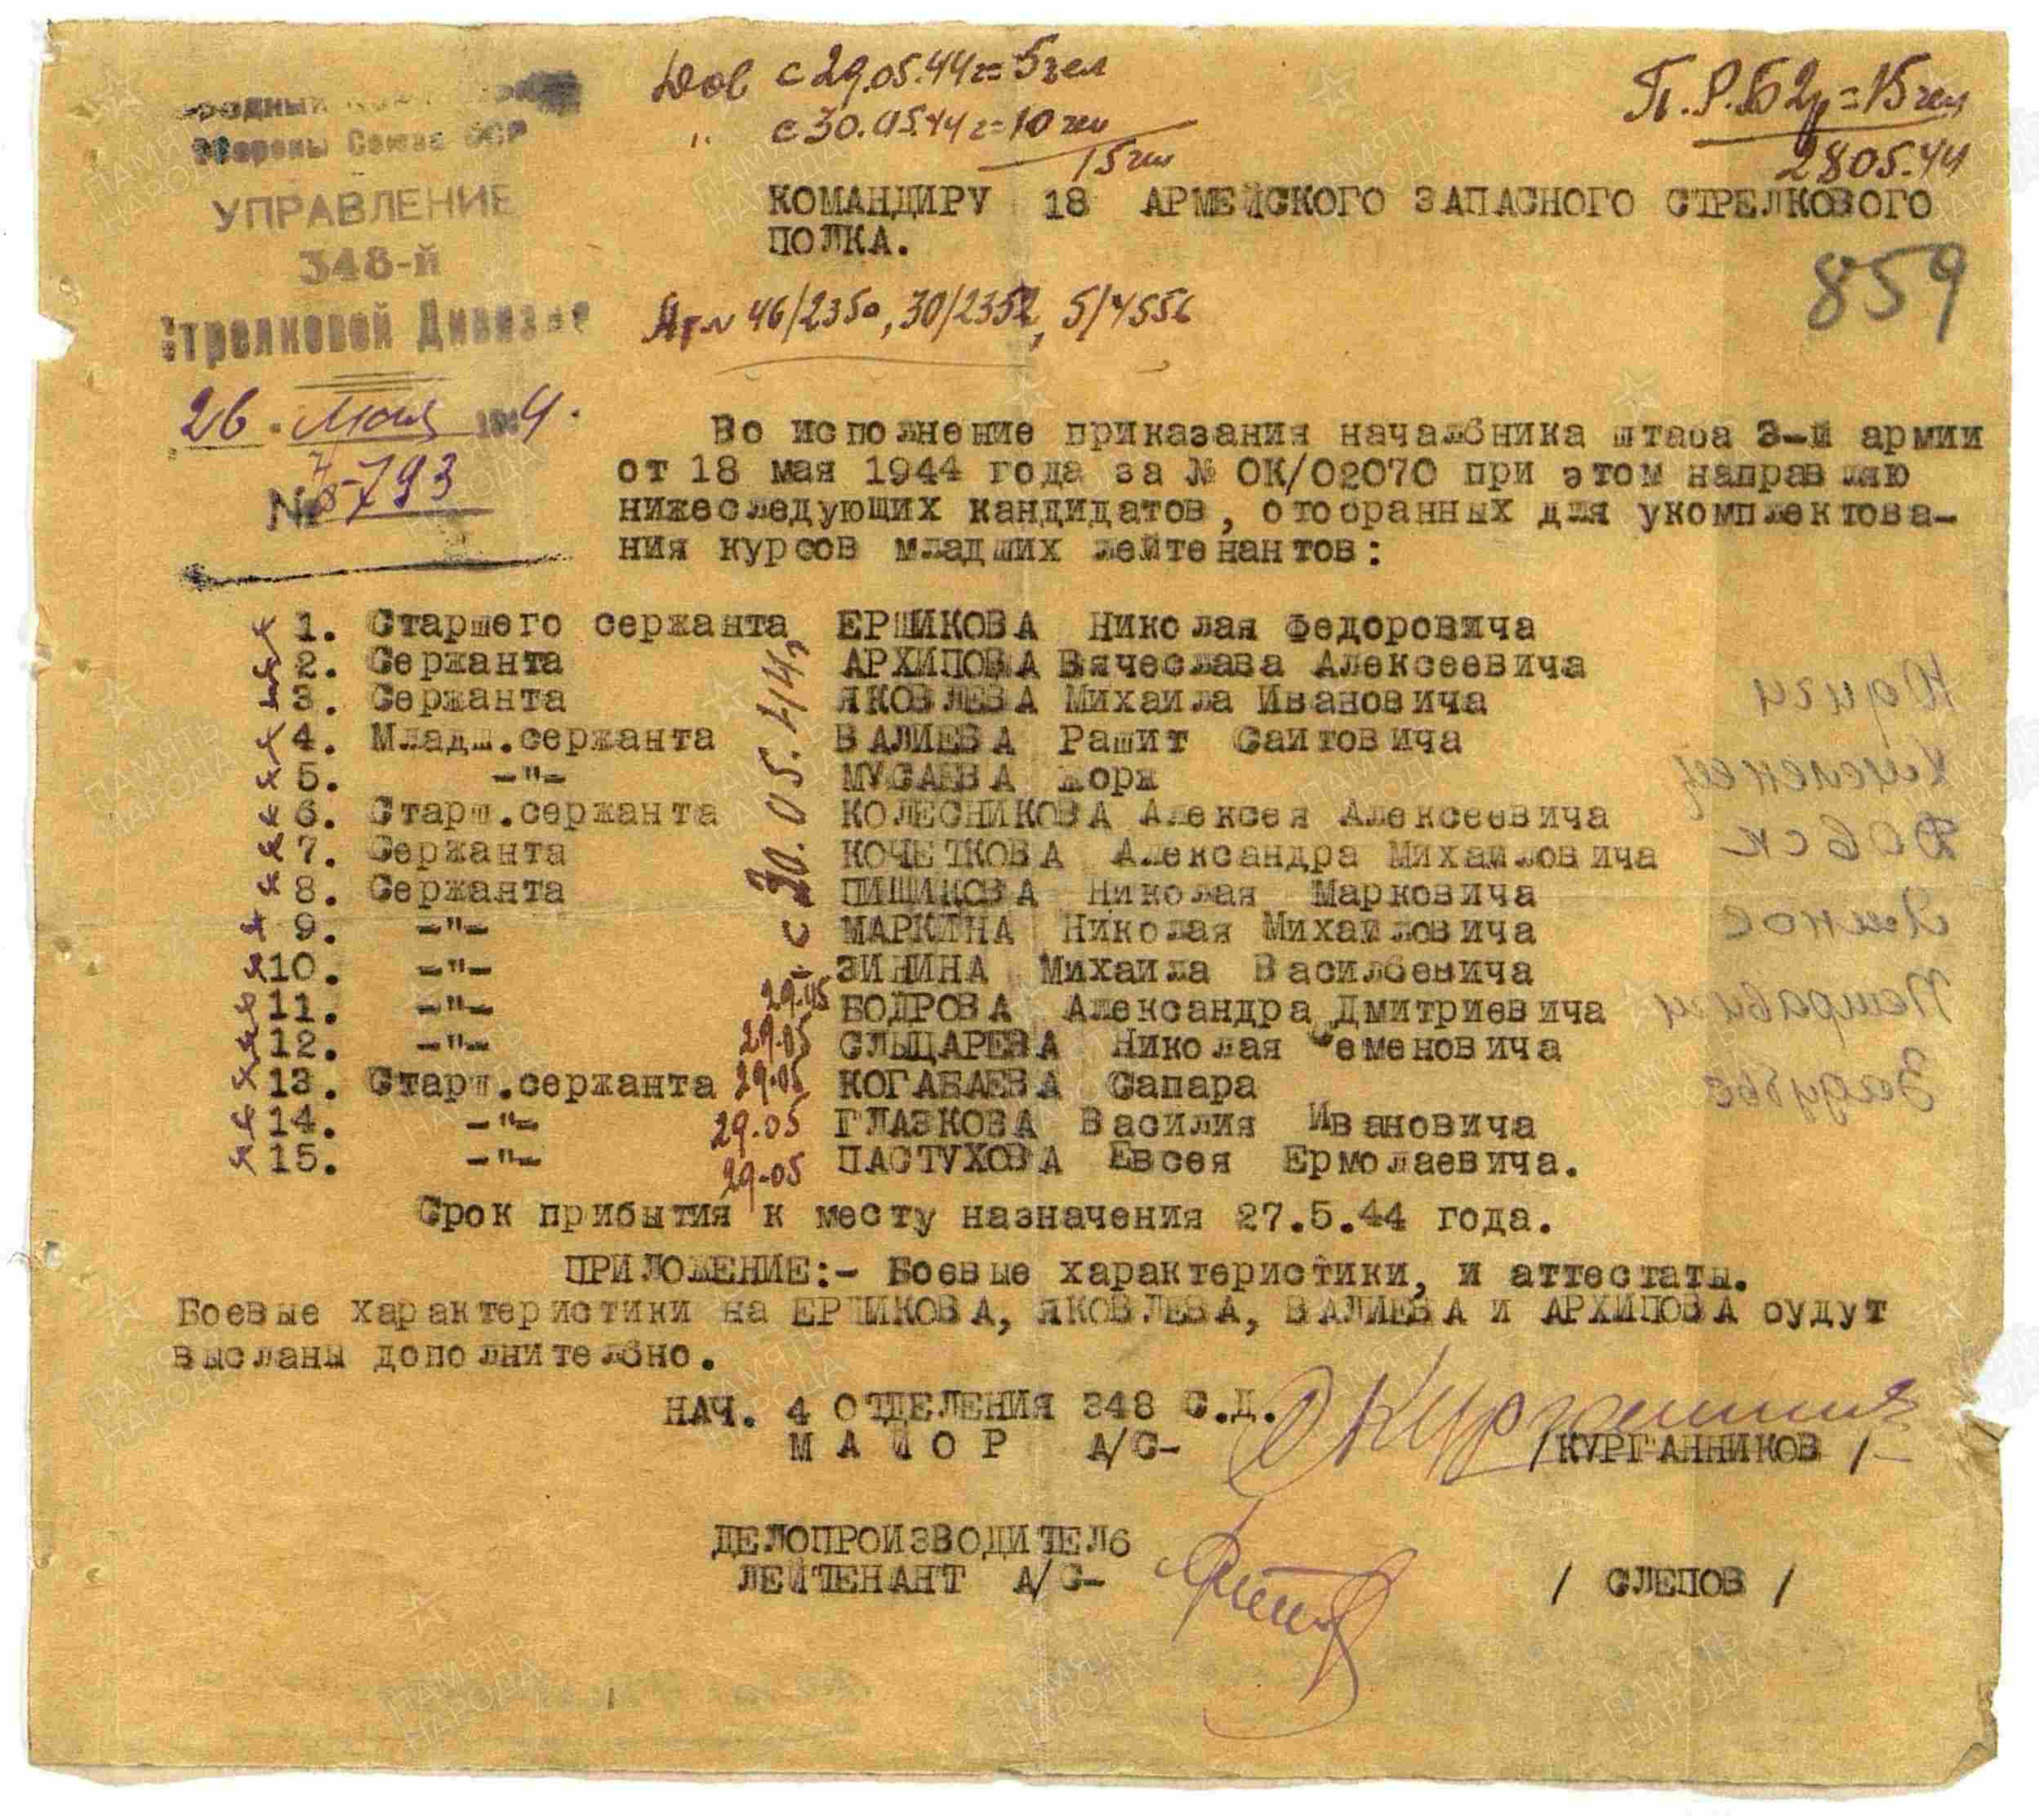 Дов с 29.05.44г = 5 чел
" с 30.05.44г = 10 чел
15 чел
П.Р.Б 2р = 15 чел
28 05.44
Обороны Союза ССР
УПРАВЛЕНИЕ
348-й
Стрелковой Дивизии
26. Мая 1944.
№ 793
КОМАНДИРУ 18 АРМЕЙСКОГО ЗАПАСНОГО СТРЕЛКОВОГО
ПОЛКА.
859
46/2350, 30/2352, 5/4556
Во исполнение приказания начальника штаба 3-й армии
от 18 мая 1944 года за № ОК/02070 при этом направляю
нижеследующих кандидатов, отобранных для укомплектова-
ния курсов младших лейтенантов:
1. Старшего сержанта ЕРШИКОВА Николая Федоровича
2. Сержанта АРХИПОВА Вячеслава Алексеевича
3. Сержанта ЯКОВЛЕВА Михаила Ивановича
4. Младш.сержанта ВАЛИЕВА Рашит Саитовича
5. -"- МУСАЕВА Жоря
6. Старш.сержанта КОЛЕСНИКОВА Алексея Алексеевича
7. Сержанта КОЧЕТКОВА Александра Михайловича
8. Сержанта ПИЩИКОВА Николая Марковича
9. -"- МАРКИНА Николая Михайловича
10. -"- ЗИНИНА Михаила Васильевича
с 30.05.44г
11. -"- 29.05 БОДРОВА Александра Дмитриевича
12. -"- 29.05 СЛЫЦАРЕВА Николая Семеновича
13. Старш.сержанта 29.05 КОГАБАЕВА Сапара
14. -"- 29.05 ГЛАЗКОВА Василия Ивановича
15. -"- 29-05 ПАСТУХОВА Евсея Ермолаевича.
Срок прибытия к месту назначения 27.5.44 года.
ПРИЛОЖЕНИЕ:- Боевые характеристики, и аттестаты.
Боевые характеристики на ЕРШИКОВА, ЯКОВЛЕВА, ВАЛИЕВА и АРХИПОВА будут
высланы дополнительно.
НАЧ. 4 ОТДЕЛЕНИЯ 348 С.Д.
МАЙОР А/С- /КУРГАННИКОВ /
ДЕЛОПРОИЗВОДИТЕЛЬ
ЛЕЙТЕНАНТ А/С- / СЛЕПОВ /
ПАМЯТЬ НАРОДА